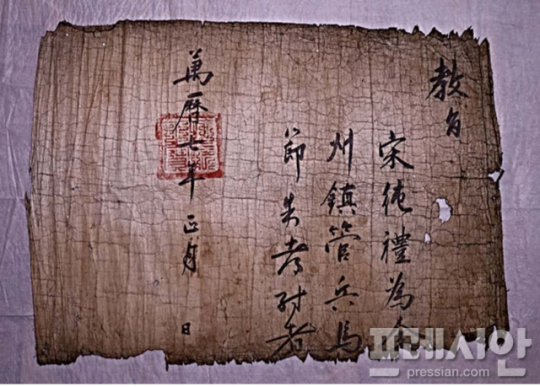 教旨
宋純禮為全
州鎮管兵馬
節制都尉者
萬曆七年正月 日
프레시안
pressian.com